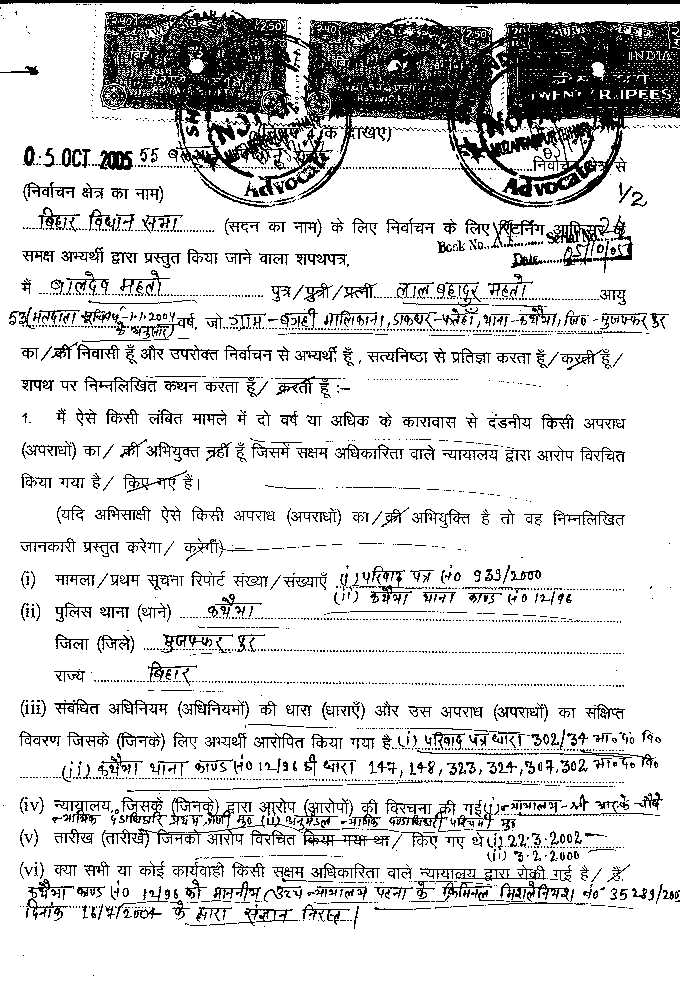 INDIA
RUPEES
NOT
Advocate
Advocate
देखिए)
05 OCT 2005 55 निर्वाचन क्षेत्र से
(निर्वाचन क्षेत्र का नाम) 1/2
बिहार विधान सभा (सदन का नाम) के लिए निर्वाचन के लिए रिटर्निंग आफिसर के
Book No. XI Serial No. 24
समक्ष अभ्यर्थी द्वारा प्रस्तुत किया जाने वाला शपथपत्र,
Date 05/10/05
मैं बालदेव महतो पुत्र/पुत्री/पत्नी लाल बहादुर महतो आयु
53 (मतदाता सूची 1-1-2004 के अनुसार) वर्ष, जो ग्राम- मालिकाना, डाकघर- थाना-कथैया, जि०-मुजफ्फरपुर
का/की निवासी हूँ और उपरोक्त निर्वाचन से अभ्यर्थी हूँ, सत्यनिष्ठा से प्रतिज्ञा करता हूँ/करती हूँ/
शपथ पर निम्नलिखित कथन करता हूँ/ करती हूँ :-
1. मैं ऐसे किसी लंबित मामले में दो वर्ष या अधिक के कारावास से दंडनीय किसी अपराध
(अपराधों) का/ की अभियुक्त नहीं हूँ जिसमें सक्षम अधिकारिता वाले न्यायालय द्वारा आरोप विरचित
किया गया है/ किए गए हैं।
(यदि अभिसाक्षी ऐसे किसी अपराध (अपराधों) का/की अभियुक्ति है तो वह निम्नलिखित
जानकारी प्रस्तुत करेगा/ करेगी)
(i) मामला/प्रथम सूचना रिपोर्ट संख्या/संख्याएँ (i) परिवाद पत्र सं० 939/2000
(ii) कथैया थाना काण्ड सं० 12/96
(ii) पुलिस थाना (थाने) कथैया
जिला (जिले) मुजफ्फरपुर
राज्य बिहार
(iii) संबंधित अधिनियम (अधिनियमों) की धारा (धाराएँ) और उस अपराध (अपराधों) का संक्षिप्त
विवरण जिसके (जिनके) लिए अभ्यर्थी आरोपित किया गया है (i) परिवाद पत्र धारा 302/34 भा० द० वि०
(ii) कथैया थाना काण्ड सं० 12/96 की धारा 147, 148, 323, 324, 307, 302 भा० द० वि०
(iv) न्यायालय जिसके (जिनके) द्वारा आरोप (आरोपों) की विरचना की गई (i) न्यायालय-श्री आरके चौबे
न्यायिक दंडाधिकारी प्रथम श्रेणी मु० (ii) अनुमंडल न्यायिक दण्डाधिकारी पश्चिमी मु०
(v) तारीख (तारीखें) जिनको आरोप विरचित किया गया था/ किए गए थे (i) 22-3-2002
(ii) 3-2-2000
(vi) क्या सभी या कोई कार्यवाही किसी सक्षम अधिकारिता वाले न्यायालय द्वारा रोकी गई है/ हैं
कथैया काण्ड सं० 12/96 को माननीय उच्च न्यायालय पटना के क्रिमिनल मिसलेनियस नं० 35289/200
दिनांक 16/7/2004 के द्वारा संज्ञान निरस्त।